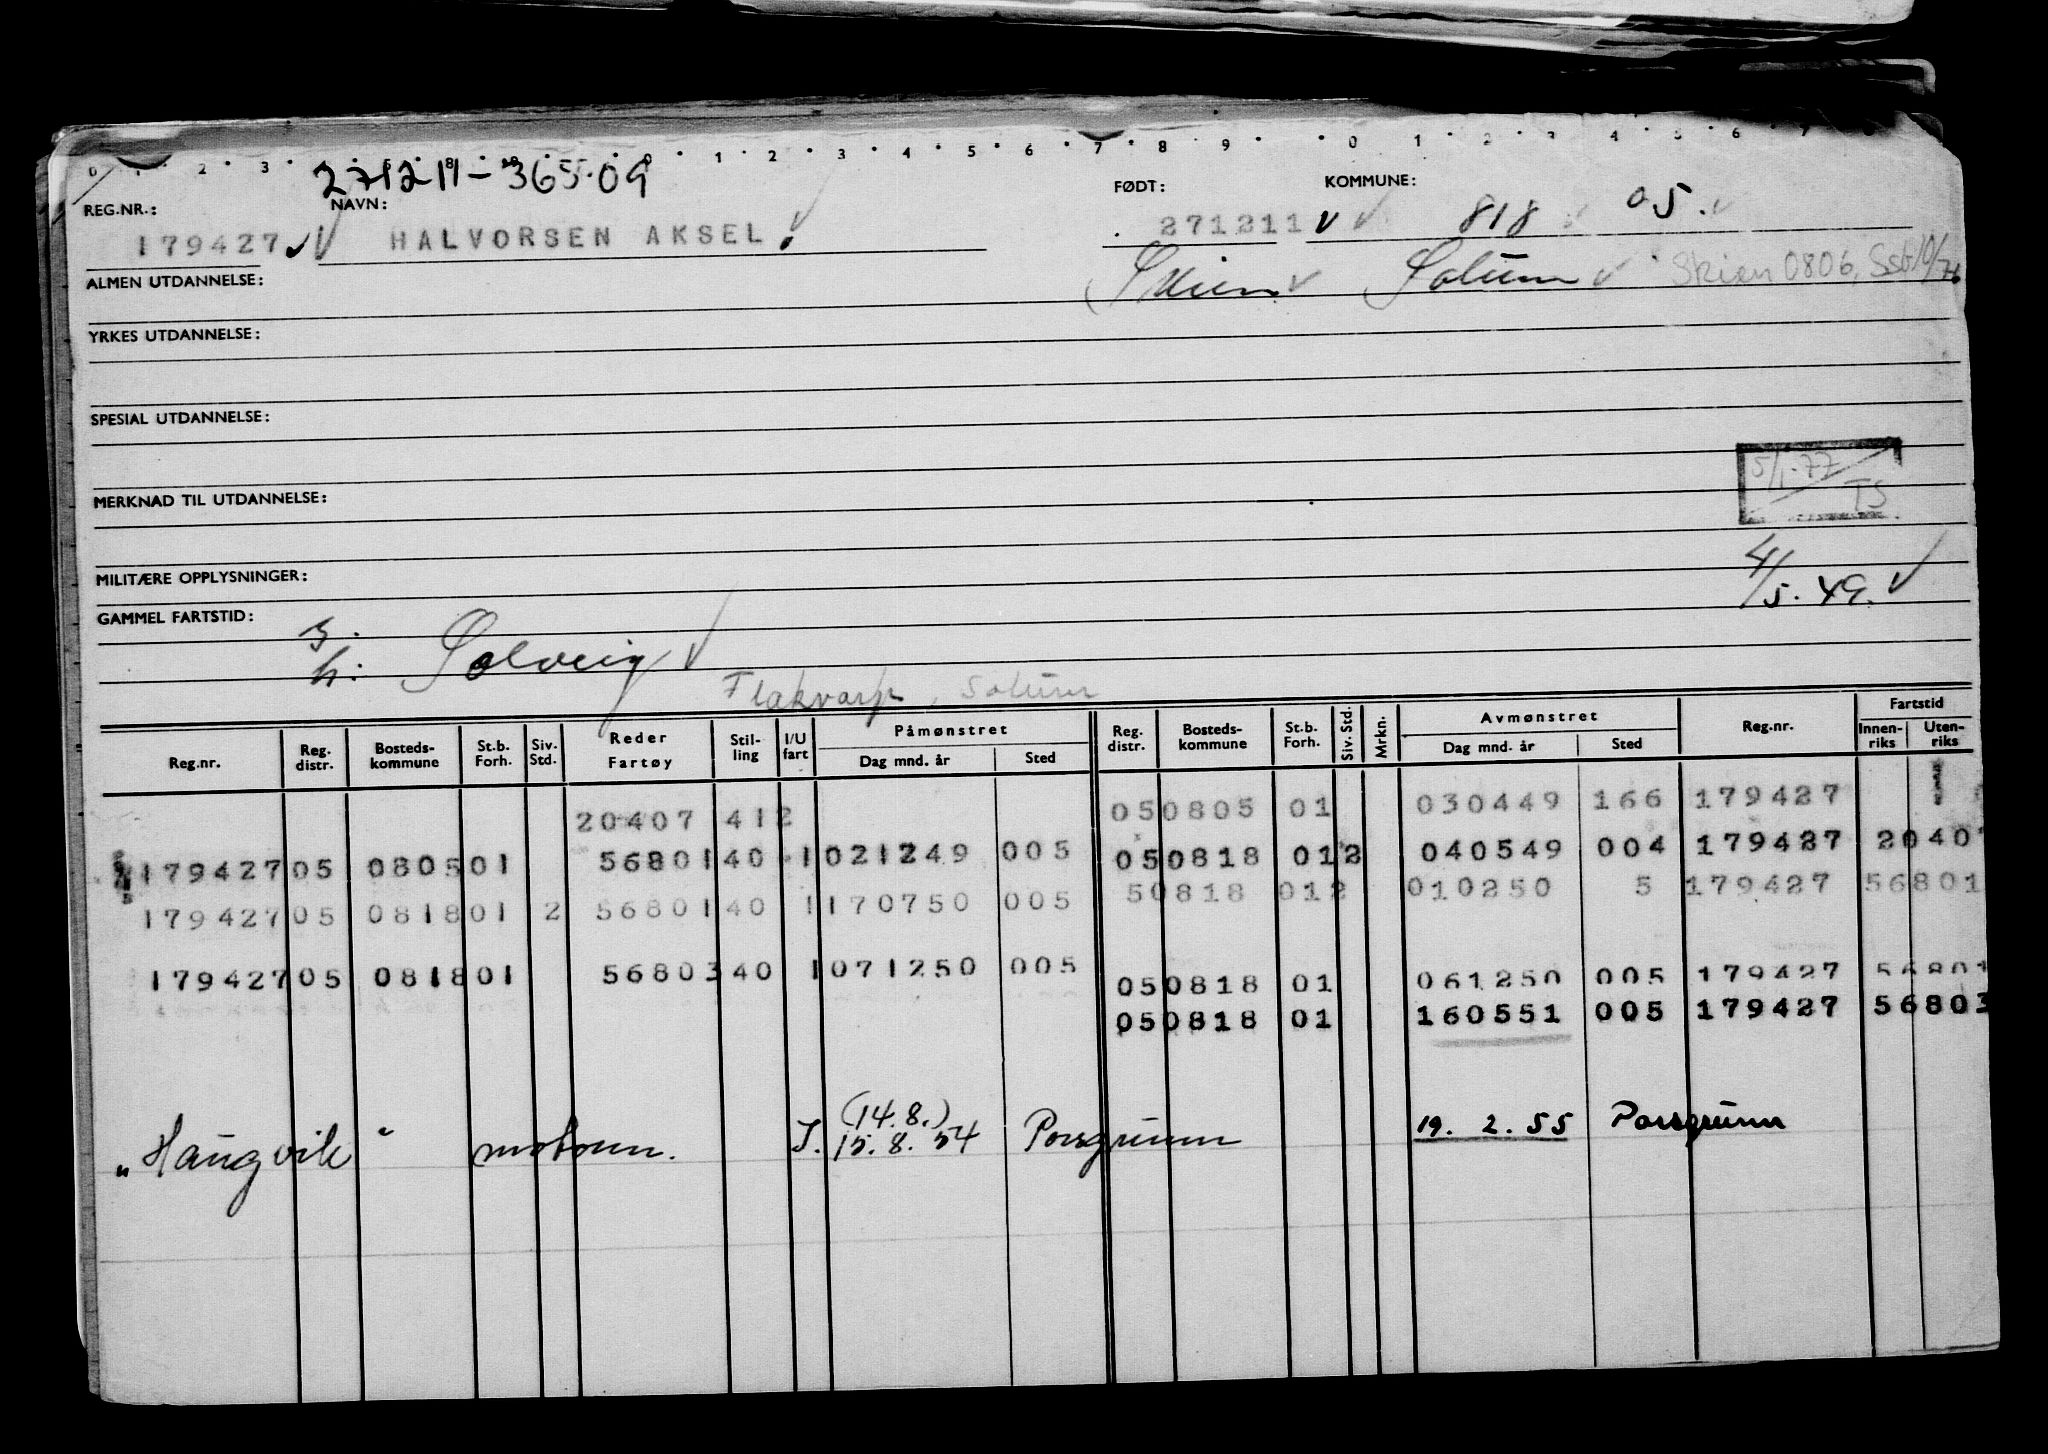 0 1 2 3 0 1 2 3 4 5 6 7 8 9 0 1 2 3 4 5 6 7
271211-36509
REG.NR.: NAVN: FØDT: KOMMUNE:
179427 HALVORSEN AKSEL 271211 818 05.
ALMEN UTDANNELSE: (Skien Solum Skien 0806, Ssb 10/76
YRKES UTDANNELSE:
SPESIAL UTDANNELSE:
5/1-77 TS
MERKNAD TIL UTDANNELSE:
MILITÆRE OPPLYSNINGER: 4/5.49.
GAMMEL FARTSTID: 3.
h: Solveig
Flakvarp, Solum
Reg.nr. Reg. distr. Bosteds-kommune St.b. Forh. Siv. Std. Reder Fartøy Stil-ling I/U fart Påmønstret Dag mnd. år Sted Reg. distr. Bosteds-kommune St.b. Forh. Siv. Std. Mrkn. Avmønstret Dag mnd. år Sted Reg.nr. Fartstid Innen-riks Uten-riks
20407 412 050805 01 030449 166 179427
179427 05 0805 01 56801 40 1 021249 005 050818 01 2 040549 004 179427 20407
179427 05 0818 01 2 56801 40 1 170750 005 50818 01 2 010250 5 179427 56801
179427 05 0818 01 56803 40 1 071250 005 050818 01 061250 005 179427 56801
050818 01 160551 005 179427 56803
"Haugvik" motorm. I. (14.8.) 15.8.54 Porsgrunn 19.2.55 Porsgrunn